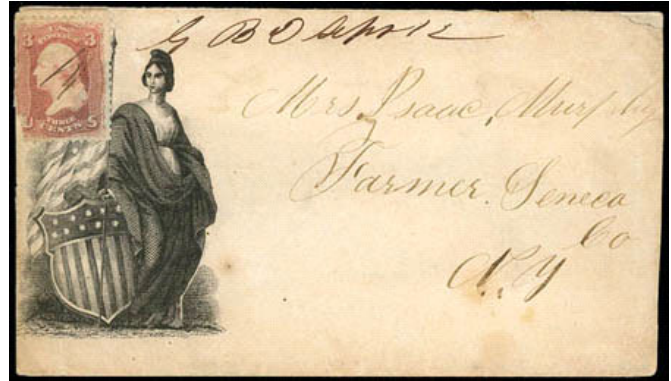 3 3
U THREE S
CENTS
G B D Apr 12
Mrs. Isaac, Murphy
Farmer. Seneca
Co
N. Y